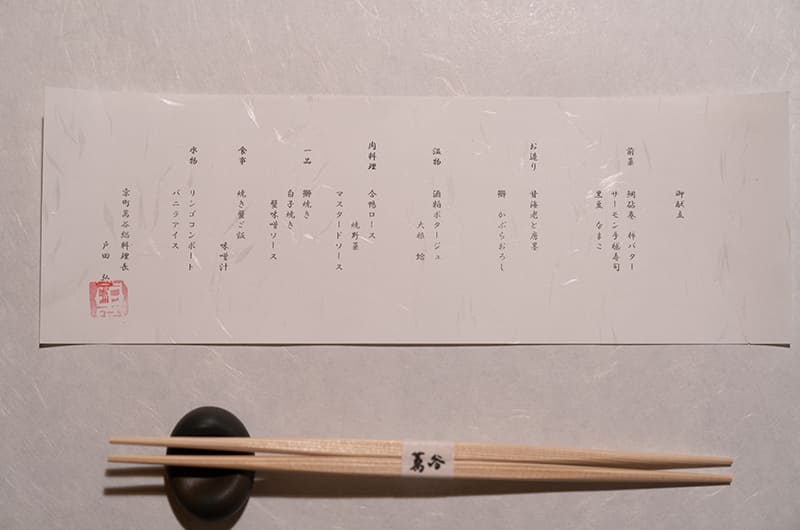 御献立
前菜 鯛砧巻 柿バター
サーモン手毬寿司
黒豆 なまこ
お造り 甘海老と唐墨
鰤 かぶらおろし
温物 酒粕ポタージュ
大根 蛤
肉料理 合鴨ロース
焼野菜
マスタードソース
一品 鰤焼き
白子焼き
蟹味噌ソース
食事 焼き蟹ご飯
味噌汁
水物 リンゴコンポート
バニラアイス
京町萬谷総料理長
戸田 弘
萬谷